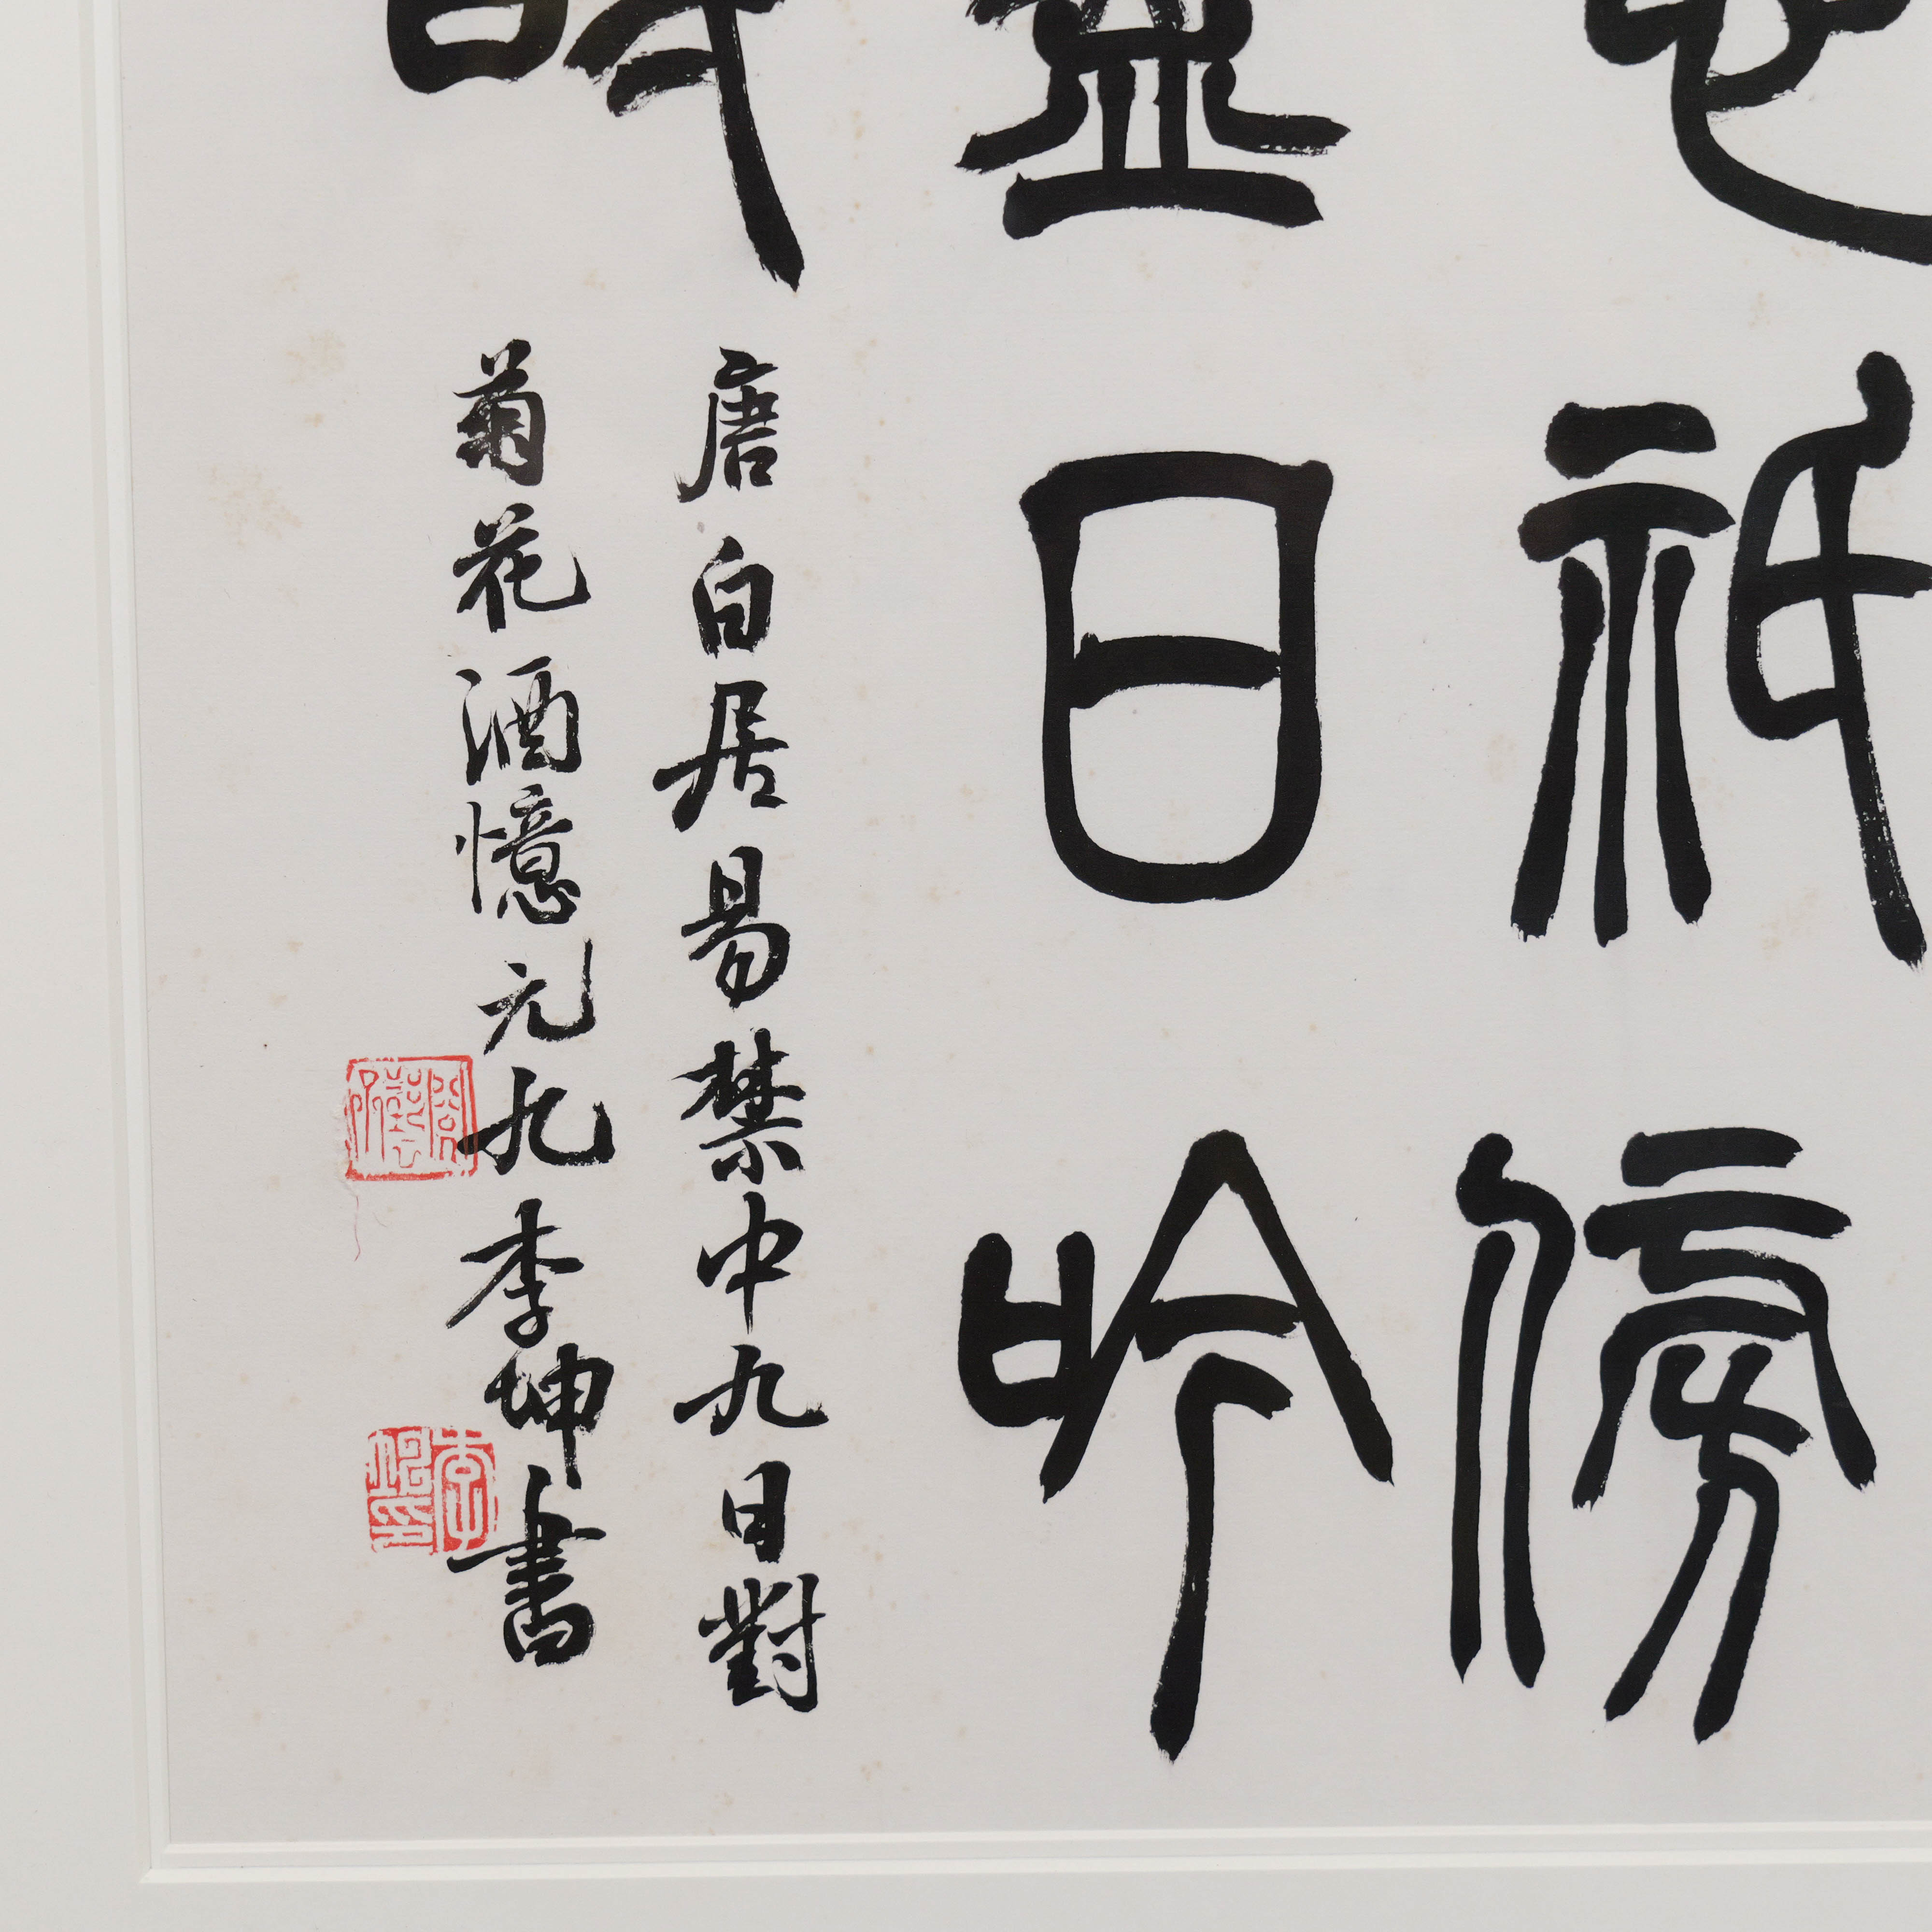 祇傍
日吟
唐白居易禁中九日對
菊花酒憶元九李坤書